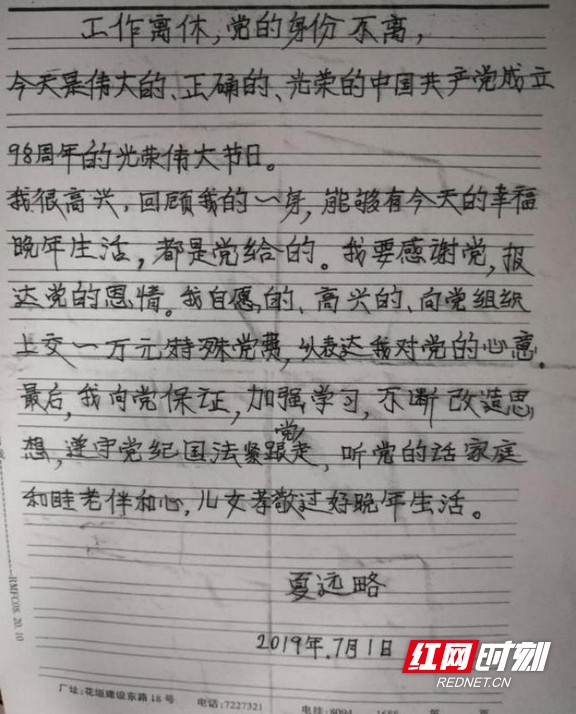 工作离休,党的身份不离,
今天是伟大的、正确的、光荣的中国共产党成立
98周年的光荣伟大节日。
我很高兴,回顾我的一身,能够有今天的幸福
晚年生活,都是党给的。我要感谢党,报
达党的恩情。我自愿的、高兴的、向党组织
上交一万元特殊党费,以表达我对党的心意.
最后,我向党保证,加强学习,不断改造思
党
想,遵守党纪国法紧跟走,听党的话家庭
和睦老伴和心,儿女孝敬过好晚年生活。
夏远略
2019年.7月1日
RMFC08.20.10
厂址:花垣建设东路18号 电话:7227321 电挂:8094
红网时刻
REDNET.CN